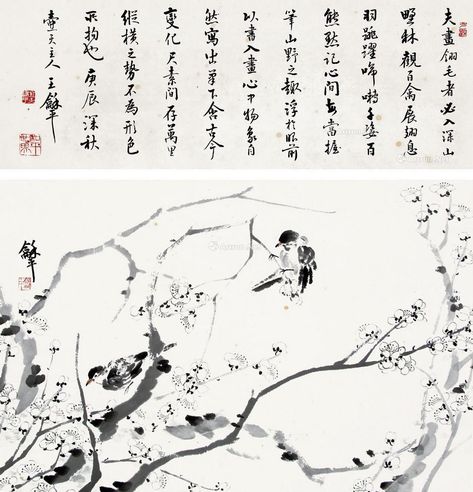 夫畫翎毛者必入深山
野林觀百禽展翅息
羽跳躍啼囀千姿百
態默記心間每當握
筆山野之歌浮於眼前
以書入畫心中物象自
然寫出筆下含古今
變化尺素間存萬里
縱橫之勢不為形色
所拘也 庚辰深秋
壺天主人 王龢平
龢平